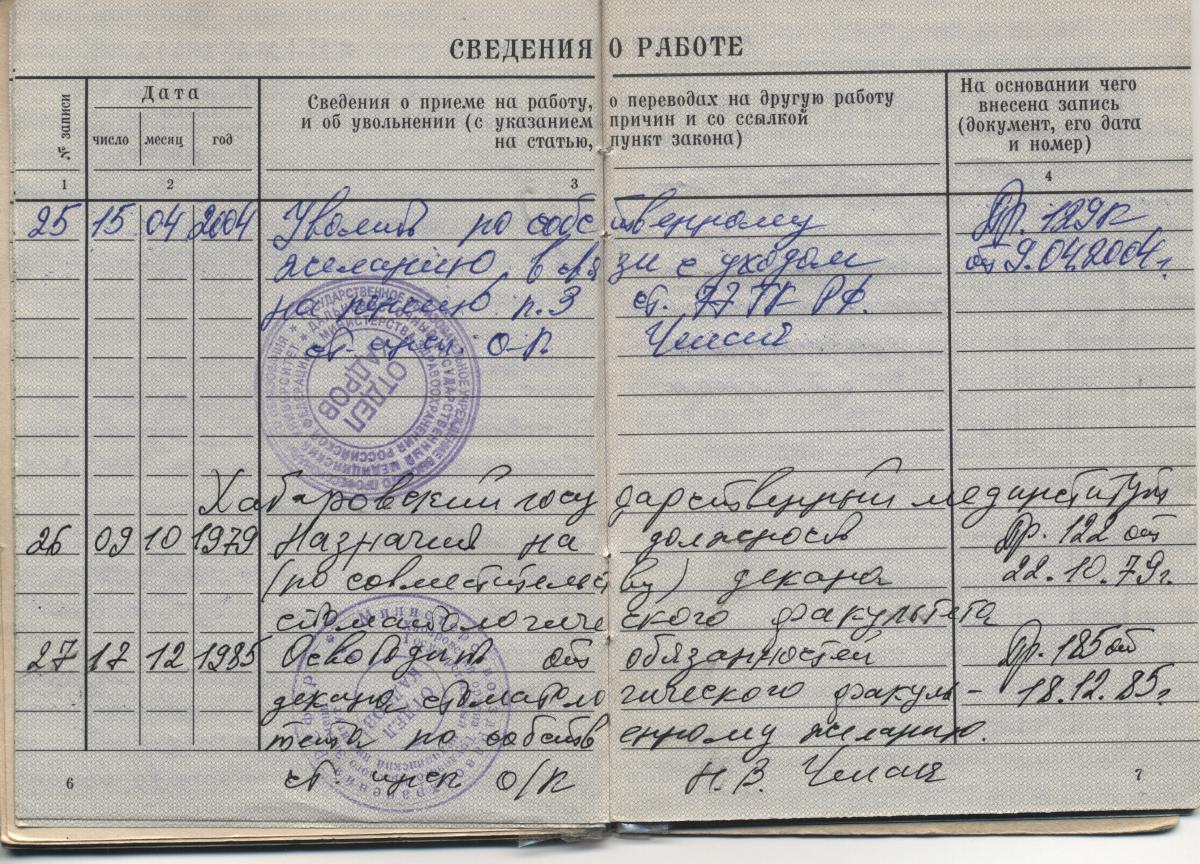 СВЕДЕНИЯ О РАБОТЕ
№ записи
Дата
число месяц год
Сведения о приеме на работу, о переводах на другую работу
и об увольнении (с указанием причин и со ссылкой
на статью, пункт закона)
На основании чего
внесена запись
(документ, его дата
и номер)
1 2 3 4
25 15 04 2004 Уволить по собственному Пр. 129к
желанию, в связи с уходом от 9.04.2004г.
на пенсию п.3 ст. 77 ТК РФ.
ст. О-К
ОТДЕЛ
КАДРОВ
Хабаровский государственный мединститут
26 09 10 1979 Назначен на должность Пр. 122 от
(по совместительству) декана 22.10.79г.
стоматологического факультета
27 17 12 1985 Освободить от обязанностей Пр. 185 от
декана стоматологического факуль- 18.12.85г
тета по собственному желанию.
ст. инсп. О/К Н.В.
6 7